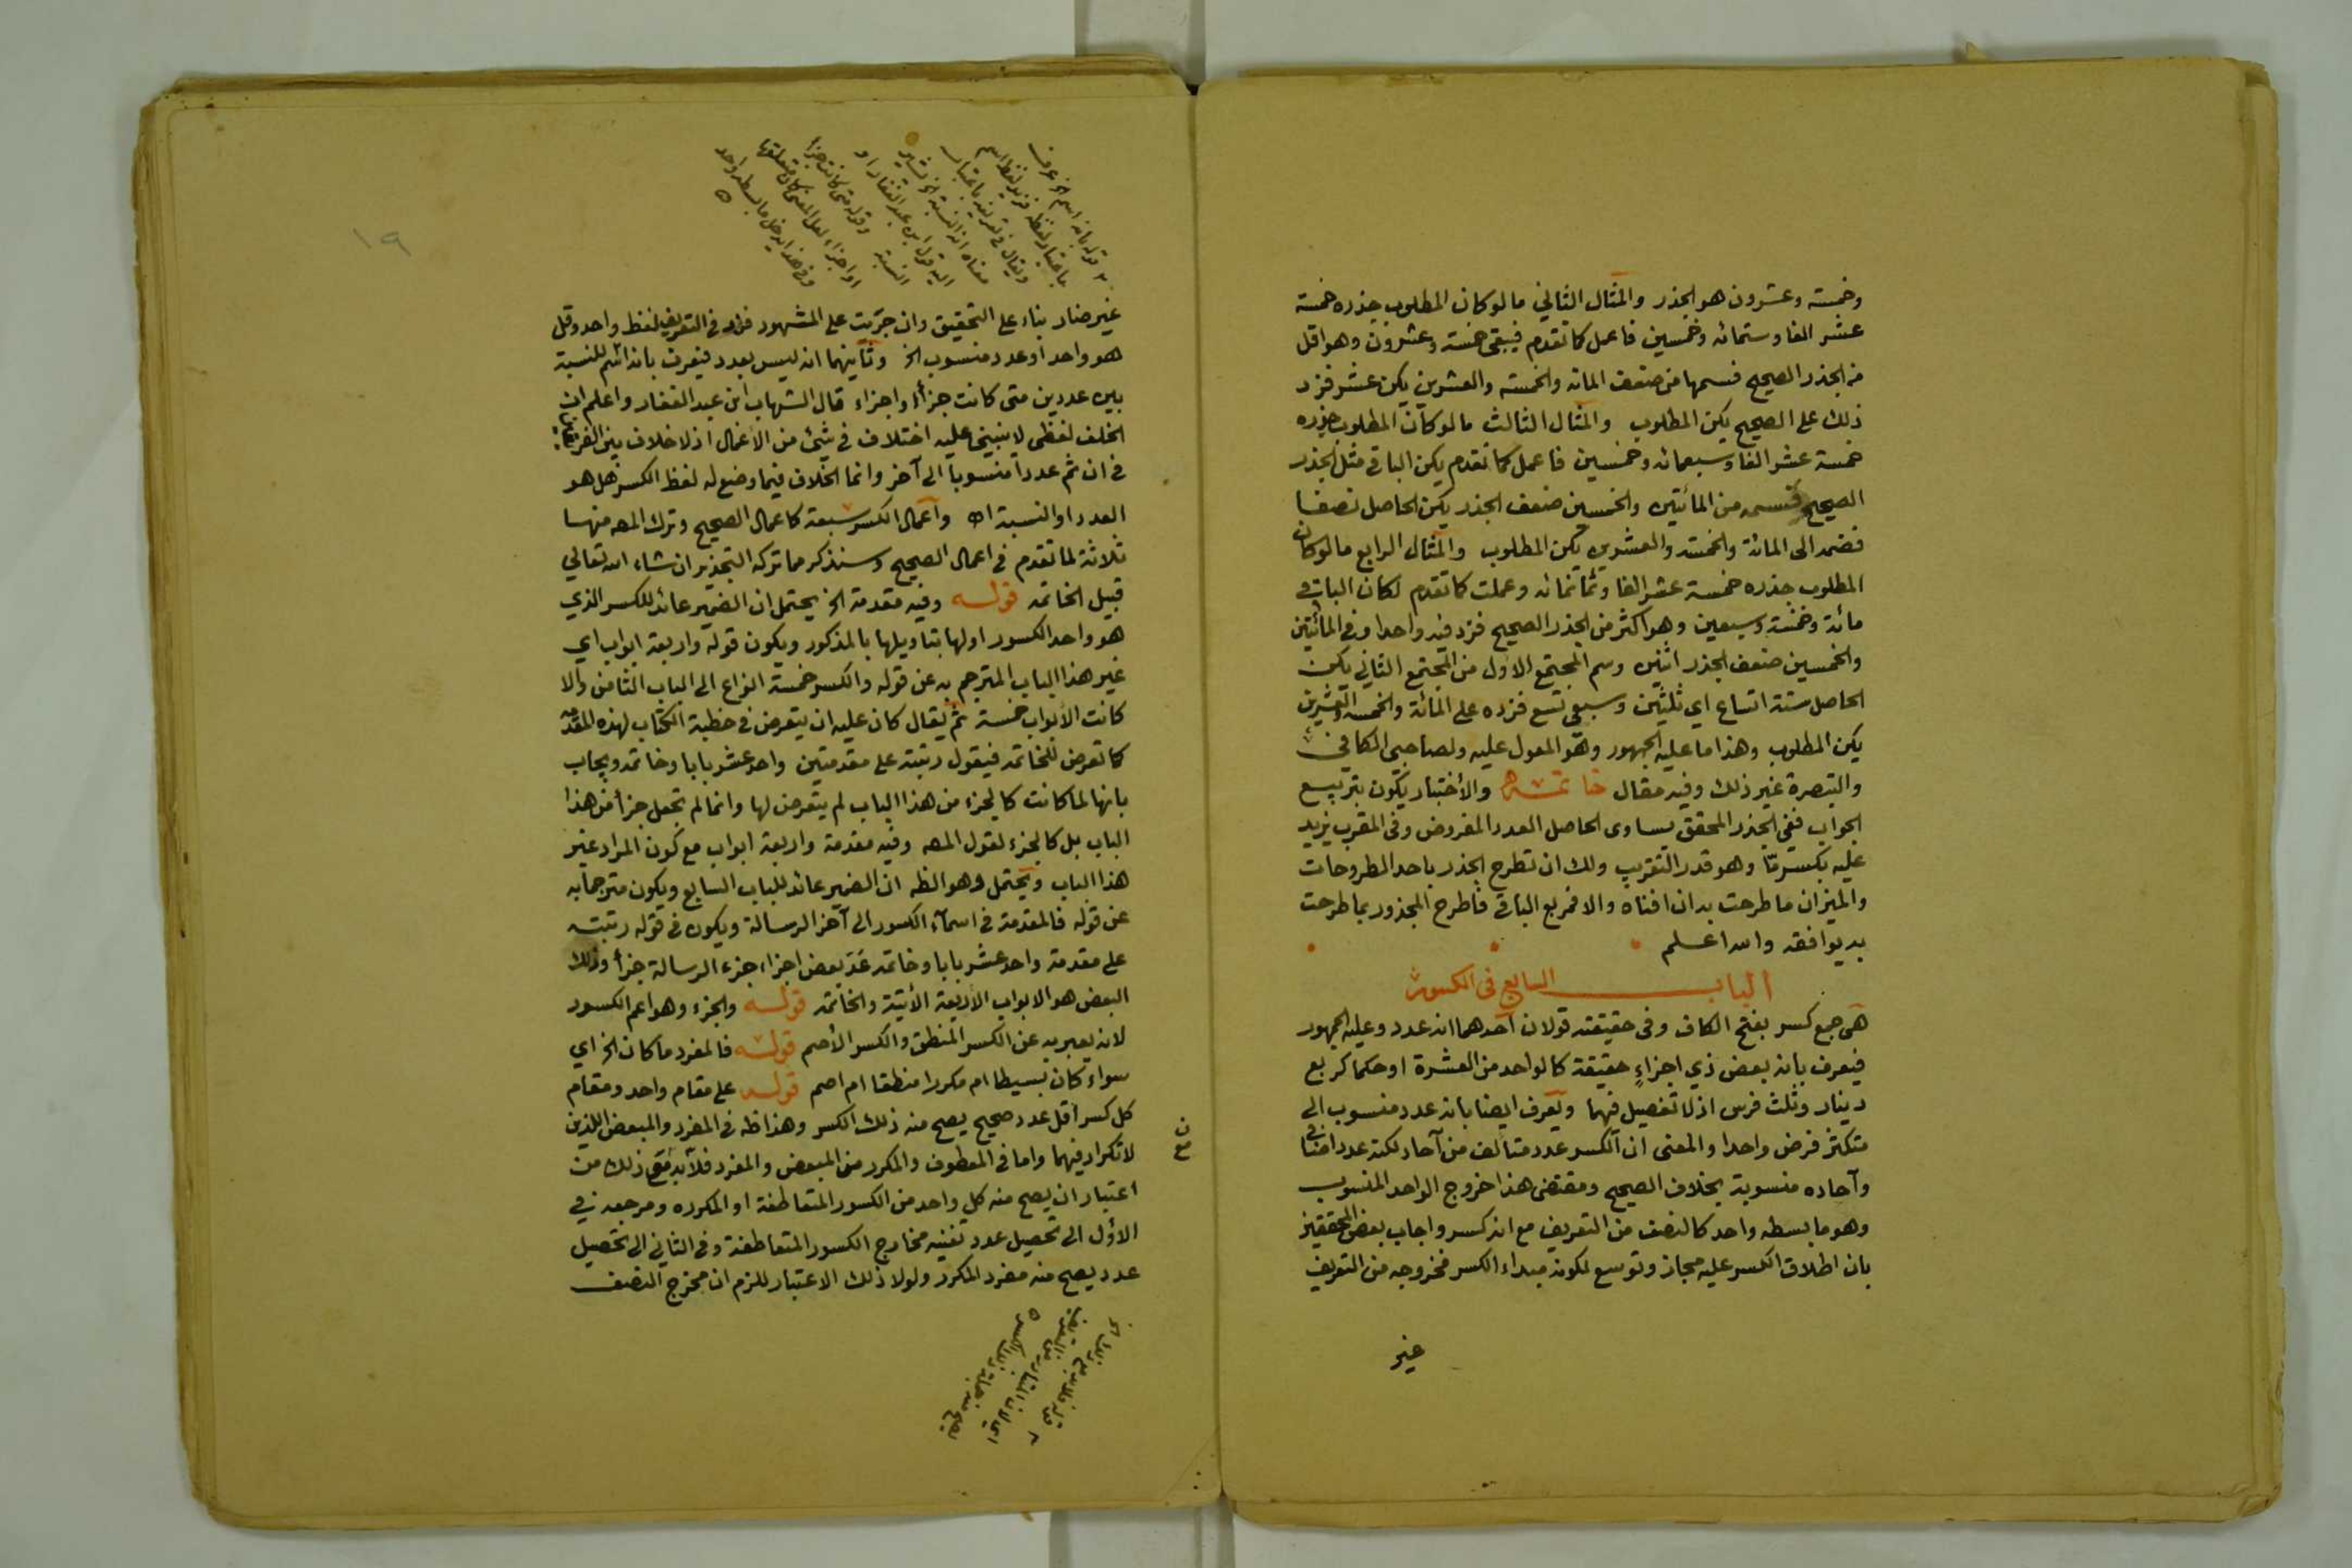 وخمسة وعشرون هو الجذر والمثال الثاني مالوكان المطلوب جذره خمسة
عشر الفا وستمائه وخمسين فاعمل كما تقدم فيبقى خمسة وعشرون وهو اقل
من الجذر الصحيح فسمها من ضعف المائه والخمسه والعشرين يكن عشر فزد
ذلك على الصحيح يكن المطلوب والمثال الثالث مالوكان المطلوب جذره
خمسة عشر الفا وسبعمائه وخمسين فاعمل كما تقدم يكن الباقي مثل الجذر
الصحيح فسمه من المائتين والخمسين ضعف الجذر يكن الحاصل نصفا
فضمه الى المائة والخمسة والعشرين يكن المطلوب والمثال الرابع مالوكان
المطلوب جذره خمسة عشر الفا وثمانمائه وعملت كما تقدم لكان الباقي
مائة وخمسة وسبعين وهو اكثر من الجذر الصحيح فزد فيه واحدا وفي المائتين
والخمسين ضعف الجذر اثنين وسم المجتمع الاول من المجتمع الثاني يكن
الحاصل ستة اتساع اي ثلثين وسبعي تسع فزده على المائة والخمسة والعشرين
يكن المطلوب وهذا ما عليه الجمهور وهو المعول عليه ولصاحبي الكافي
والتبصرة غير ذلك وفيه مقال خاتمه والأختبار يكون بتربيع
الجواب ففي الجذر المحقق يساوى الحاصل العدد المفروض وفي المقرب يزيد
عليه بكسر ما وهو قدر التقريب ولك ان تطرح الجذر باحد المطروحات
والميزان ما طرحت به ان افناه والا فمربع الباقي فاطرح المجذور بما طرحت
به يوافقه والله اعلم
الباب السابع في الكسور
هي جمع كسر بفتح الكاف وفي حقيقته قولان احدهما انه عدد وعليه الجمهور
فيعرف بانه بعض ذي اجزاءٍ حقيقة كالواحد من العشرة او حكما كربع
دينار وثلث فرس اذ لا تفصيل فيهما ويعرف ايضا بانه عدد منسوب الى
متكثر فرض واحدا والمعنى ان الكسر عدد متألف من آحاد لكنه عدد اضافي
وآحاده منسوبة بخلاف الصحيح ومقتضى هذا خروج الواحد المنسوب
وهو ما بسطه واحد كالنصف من التعريف مع انه كسر واجاب بعض المحققين
بان اطلاق الكسر عليه مجاز وتوسع لكونه مبداء الكسر فخروجه من التعريف
غير
١٩
٢ قوله بانه اسم الخ عرف
باعتبار لفظه فزيد لفظ اسم
ويقال في تعريفه باعتبار
معناه انه النسبة الخ
اليه قول ابن عبد الغفار او
النسبة وقوله متى كانت جزا
او اجزاء
وفي هذا ليدخل ما بسطه واحد
غير ضار بناء على التحقيق وان جريت على المشهور فزد في التعريف لفظ واحد وقل
هو واحد او عدد منسوب الخ وثانيهما انه ليس بعدد فيعرف بانه اسم للنسبة
بين عددين متى كانت جزأ او اجزاء قال الشهاب ابن عبد الغفار واعلم ان
الخلف لفظي لا ينبني عليه اختلاف في شيئ من الأعمال اذ لا خلاف بين الفريقين
في ان ثم عددا منسوبا الى آخر وانما الخلاف فيما وضع له لفظ الكسر هل هو
العدد او النسبة اه وآعمال الكسر سبعة كاعمال الصحيح وترك المصـ منها
ثلاثة لما تقدم في اعمال الصحيح وسنذكر مما تركه التجذير ان شاء الله تعالى
قبيل الخاتمه قوله وفيه مقدمة الخ يحتمل ان الضمير عائد للكسر الذي
هو واحد الكسور اولها بتاويلها بالمذكور ويكون قوله واربعة ابواب اي
غير هذا الباب المترجم به عن قوله والكسر خمسة انواع الى الباب الثامن والا
كانت الأبواب خمسة ثم يقال كان عليه ان يتعرض في خطبة الكتاب لهذه المقدمه
كما تعرض للخاتمه فيقول رتبته على مقدمتين واحد عشر بابا وخاتمه ويجاب
بانها لما كانت كالجزء من هذا الباب لم يتعرض لها وانما لم تجعل جزأ من هذا
الباب بل كالجزء لقول المصـ وفيه مقدمة واربعة ابواب مع كون المراد غير
هذا الباب ويحتمل وهو الظه ان الضمير عائد للباب السابع ويكون مترجما به
عن قوله فالمقدمة في اسماء الكسور الى آخر الرسالة ويكون في قوله رتبته
على مقدمة واحد عشر بابا وخاتمه عَدّ بعض اجزاء جزء الرسالة جزأ وذلك
البعض هو الابواب الأربعة الأتية والخاتمه قوله والجزء وهو اعم الكسور
لانه يعبر به عن الكسر المنطق والكسر الأصم قوله فالمفرد ما كان الخ اي
سواء كان بسيطا ام مكررا منطقا ام اصم قوله على مقام واحد ومقام
كل كسر أقل عدد صحيح يصح منه ذلك الكسر وهذا ظه في المفرد والمبعض اللذين
لا تكرار فيهما واما في المعطوف والمكرر من المبعض والمفرد فلا بد مع ذلك من
اعتبار ان يصح منه كل واحد من الكسور المتعاطفة او المكرره ومرجعه في
الاول الى تحصيل عدد تفنيه مخارج الكسور المتعاطفة وفي الثاني الى تحصيل
عدد يصح منه مفرد المكرر ولولا ذلك الاعتبار للزم ان مخرج النصف